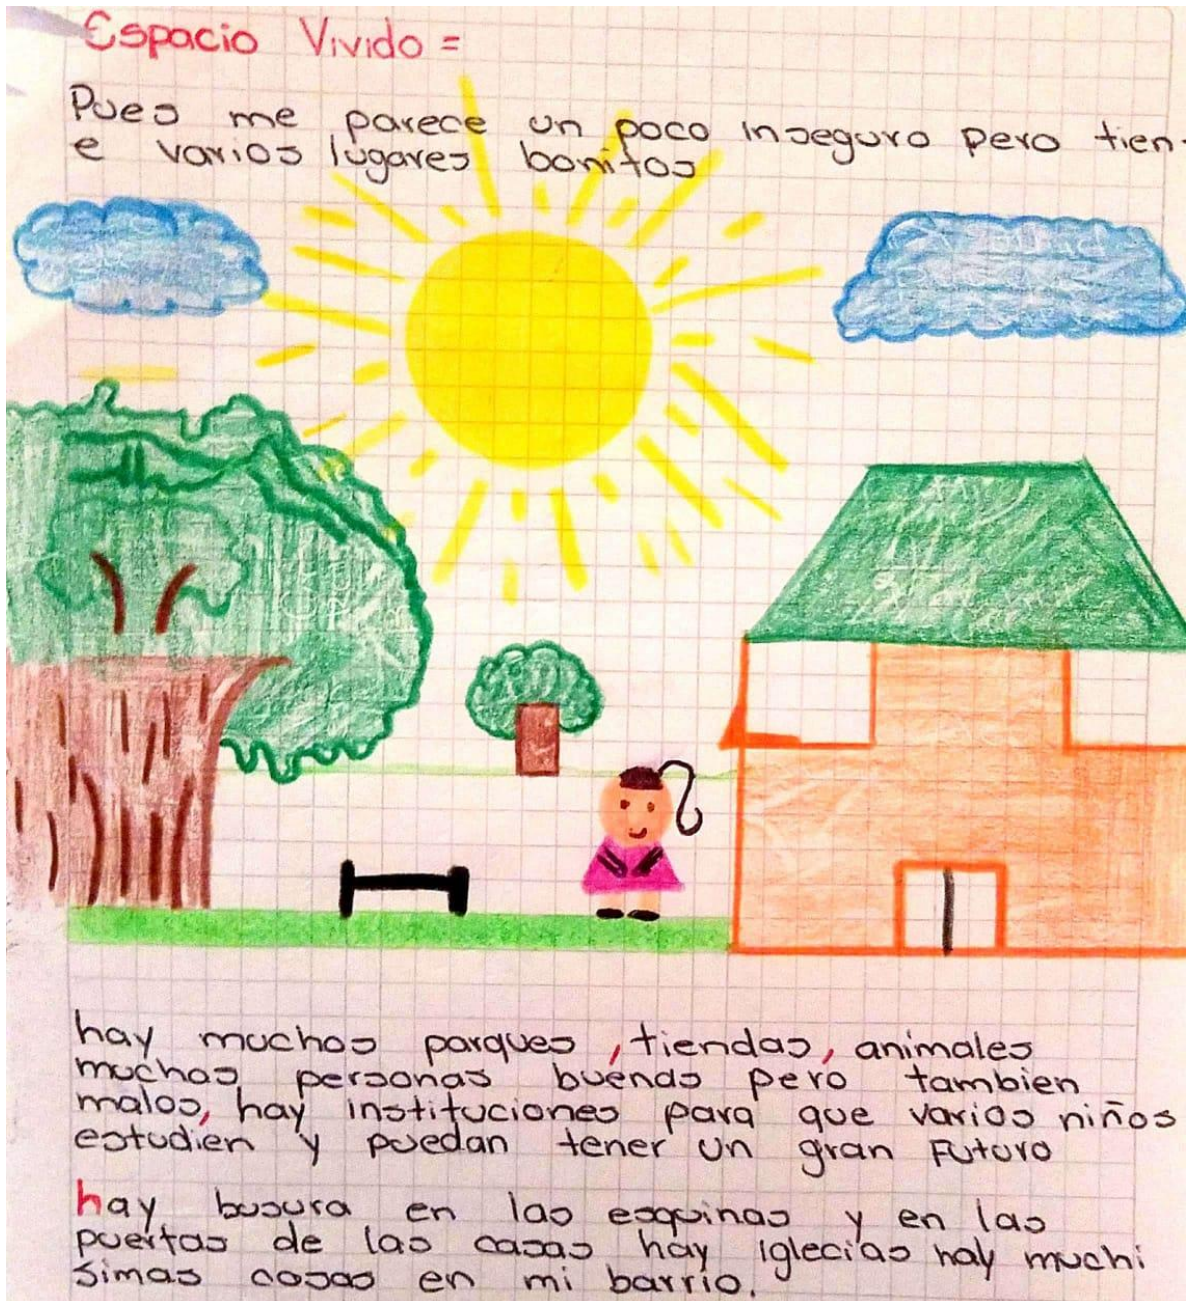 Espacio Vivido =
Pues me parece un poco inseguro pero tien-
e varios lugares bonitos
hay muchos parques, tiendas, animales
muchas personas buenas pero tambien
malos, hay instituciones para que varios niños
estudien y puedan tener un gran Futuro
hay busura en las esquinas y en las
puertas de las casas hay iglecias hay muchi
simas cosas en mi barrio.